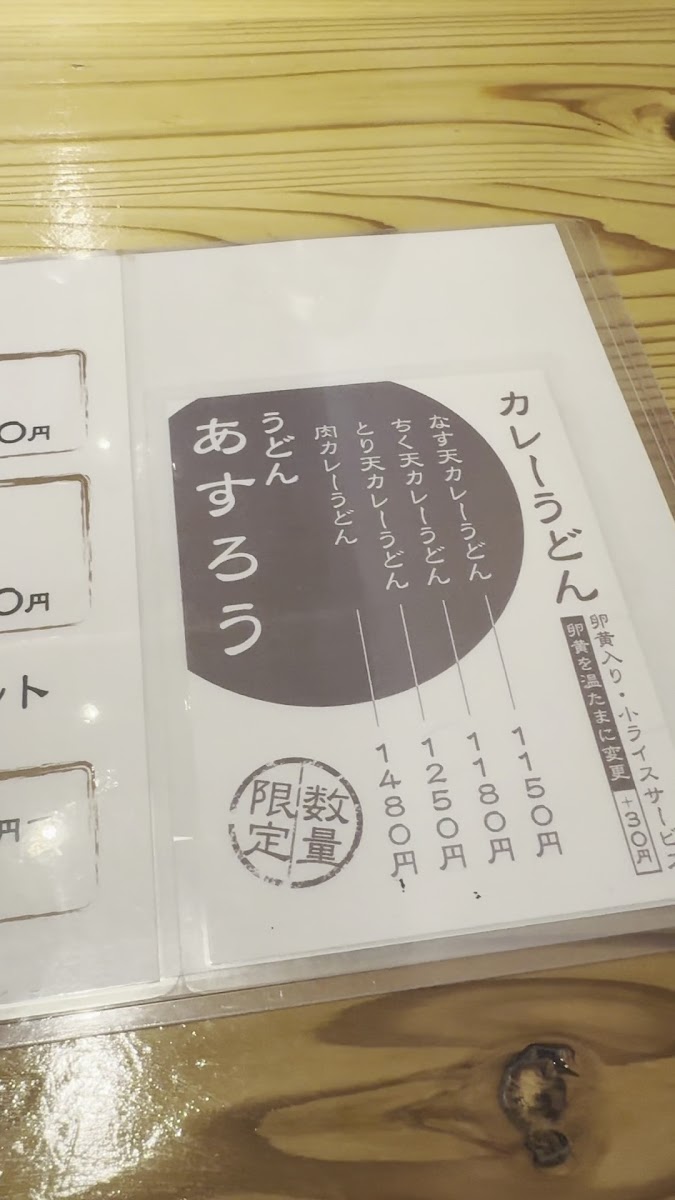 カレーうどん
卵黄入り・小ライスサービス
卵黄を温たまに変更 +30円
なす天カレーうどん 1150円
ちく天カレーうどん 1180円
とり天カレーうどん 1250円
肉カレーうどん 1480円
うどん
あすろう
数量
限定
0円
0円
ット
円